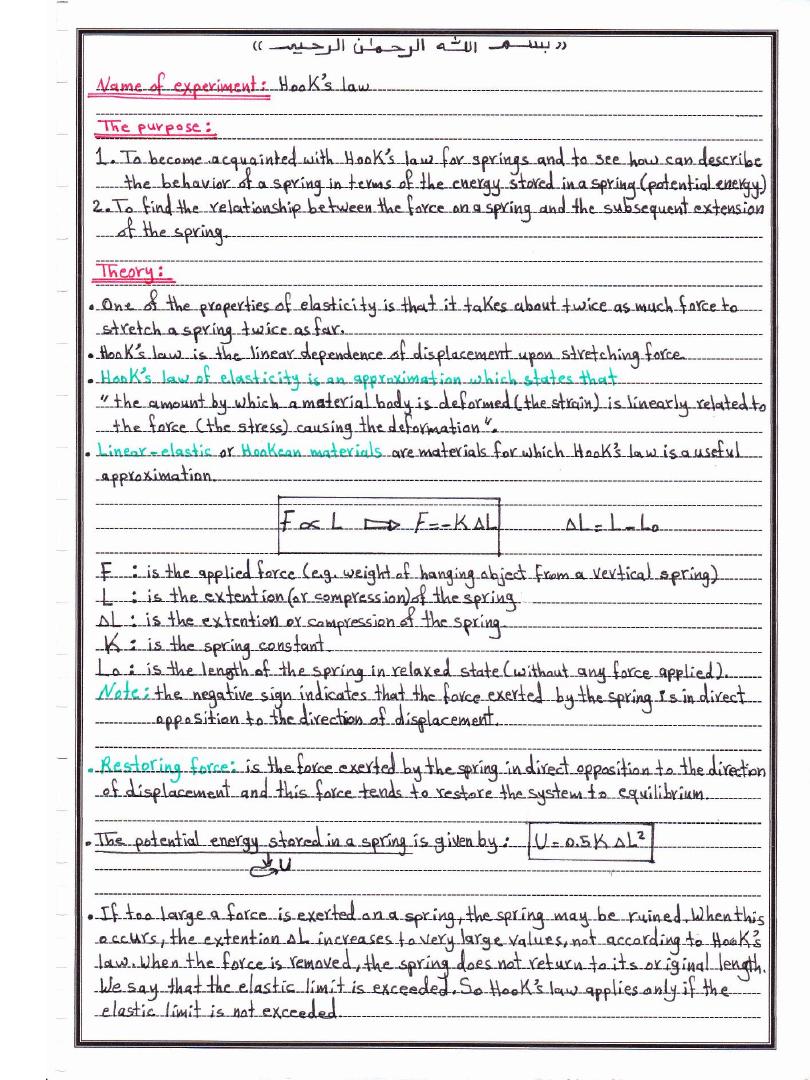 (( بسم الله الرحمن الرحيم ))
Name of experiment: HooK's law
The purpose:
1. To become acquainted with HooK's law for springs and to see how can describe
the behavior of a spring in terms of the energy stored in a spring (potential energy)
2. To find the relationship between the force on a spring and the subsequent extension
of the spring.
Theory:
• One of the properties of elasticity is that it takes about twice as much force to
stretch a spring twice as far.
• HooK's law is the linear dependence of displacement upon stretching force.
• HooK's law of elasticity is an approximation which states that
" the amount by which a material body is deformed (the strain) is linearly related to
the force (the stress) causing the deformation ".
• Linear-elastic or Hookean materials are materials for which HooK's law is a useful
approximation.
F ∝ L ⇨ F = -K ΔL ΔL = L - L₀
F : is the applied force (e.g. weight of hanging object from a vertical spring)
L : is the extention (or compression) of the spring
ΔL : is the extention or compression of the spring.
K : is the spring constant.
L₀ : is the length of the spring in relaxed state (without any force applied).
Note: the negative sign indicates that the force exerted by the spring is in direct
opposition to the direction of displacement.
• Restoring force: is the force exerted by the spring in direct opposition to the direction
of displacement and this force tends to restore the system to equilibrium.
• The potential energy stored in a spring is given by: U = 0.5 K ΔL²
U
• If too large a force is exerted on a spring, the spring may be ruined. When this
occurs, the extention ΔL increases to very large values, not according to HooK's
law. When the force is removed, the spring does not return to its original length.
We say that the elastic limit is exceeded. So HooK's law applies only if the
elastic limit is not exceeded.